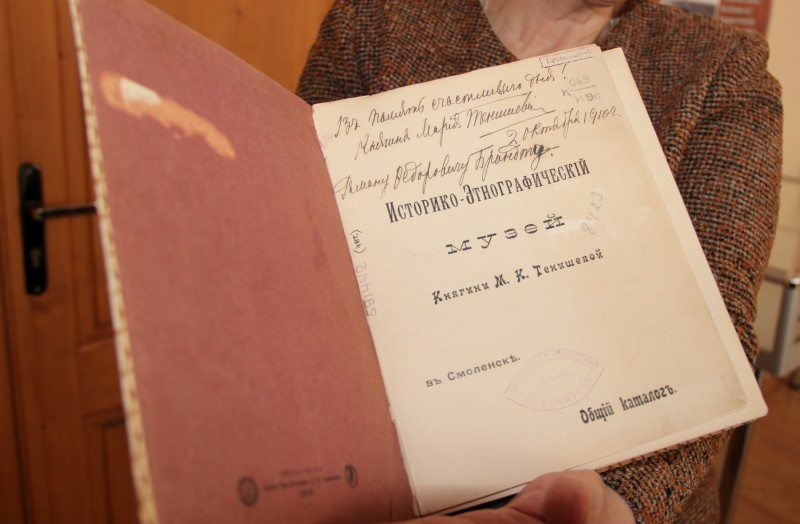 Въ память счастливаго дня!
Княгиня Марія Тенишева
2 октября 1910 г.
Роману Ѳедоровичу Брандту.
069
К
1190
Историко-Этнографическій
музей
Княгини М. К. Тенишевой
въ Смоленскѣ.
Общій каталогъ.
8423